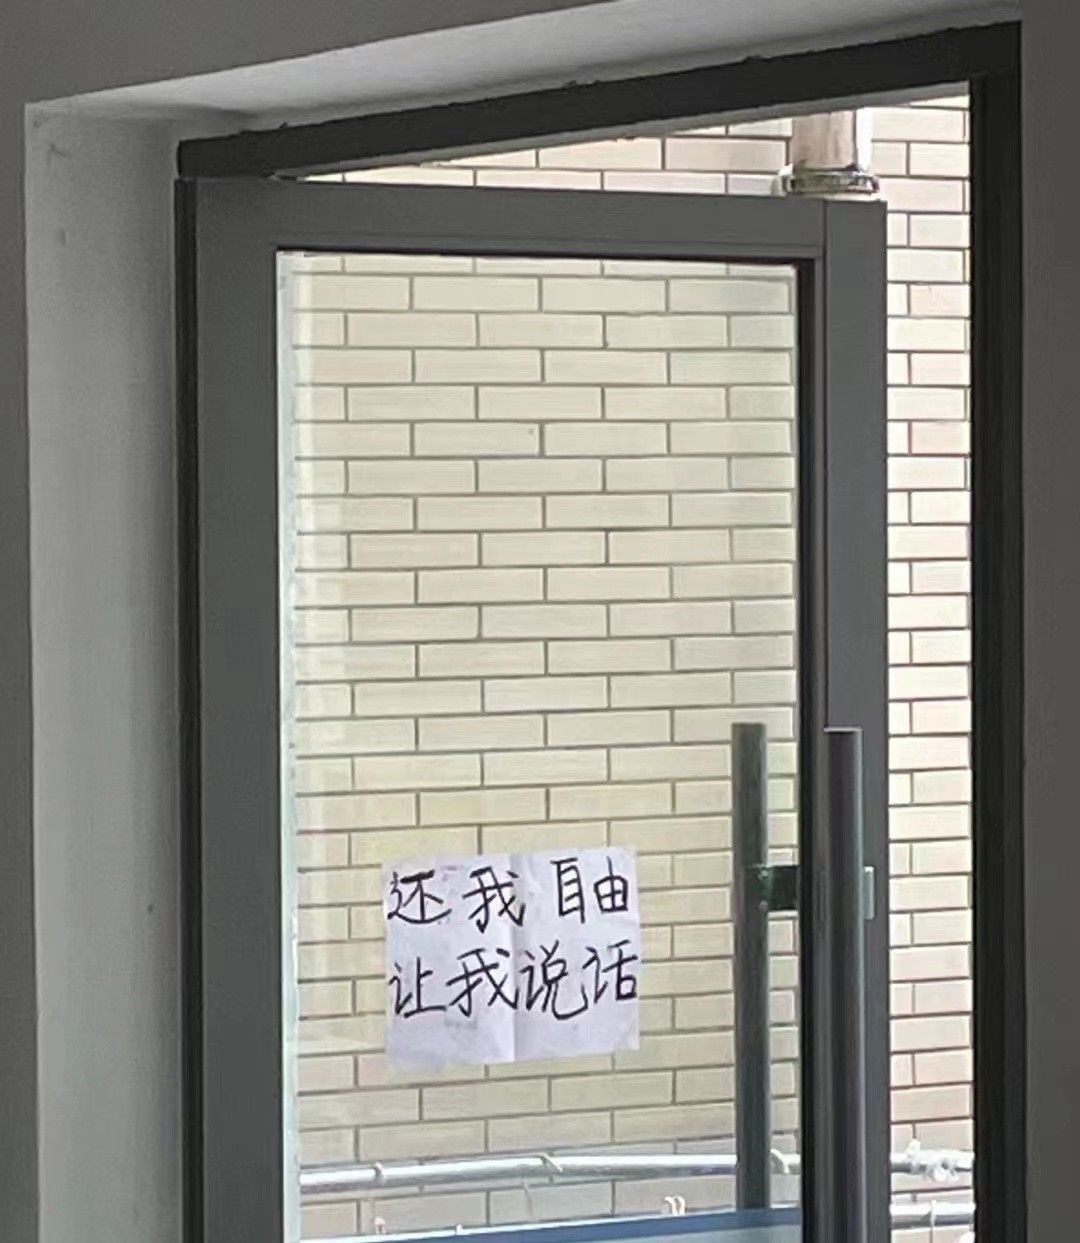 还我自由
让我说话